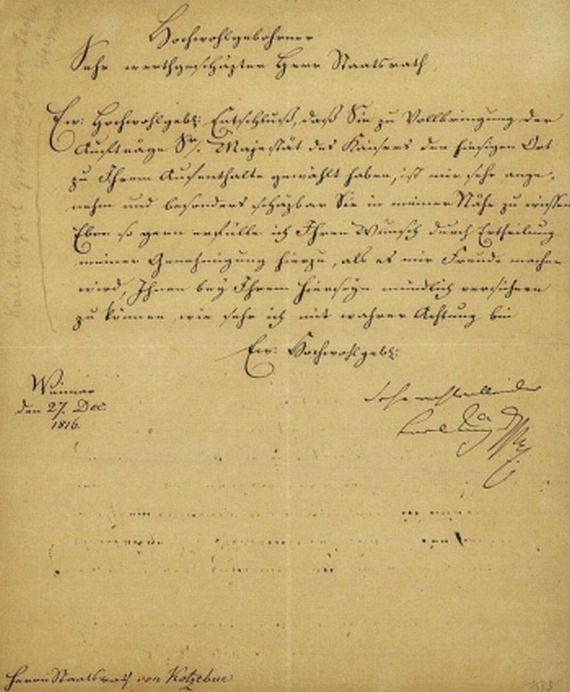 Hochwohlgebohrner
Sehr werthgeschäzter Herr Staatsrath,
Ew: Hochwohlgeb: Entschluß, daß Sie zu Vollbringung der
Aufträge Sr. Majestät des Kaisers den hiesigen Ort
zu Ihrem Aufenthalte gewählt haben, ist mir sehr ange-
nehm und besonders schäzbar Sie in meiner Nähe zu wissen
Eben so gern erfülle ich Ihren Wunsch durch Ertheilung
meiner Genehmigung hierzu, als es mir Freude machen
wird, Ihnen bey Ihrem Hierseyn mündlich versichern
zu können wie sehr ich mit wahrer Achtung bin
Ew: Hochwohlgeb:
Weimar
den 27. Dec.
1816.
Carl August
Herrn Staatsrath von Kotzebue